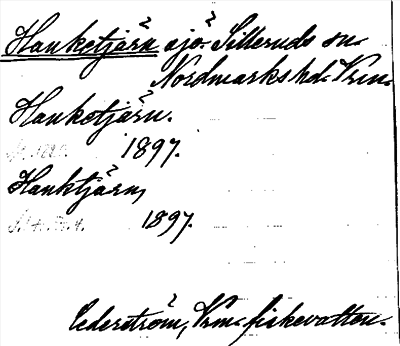 Hanketjärn sjö. Silleruds sn.
Nordmarks hd. Vrm.
Hanketjärn.
1897.
Hanktjärn,
1897.
Cederström, Vrm. fiskevatten.